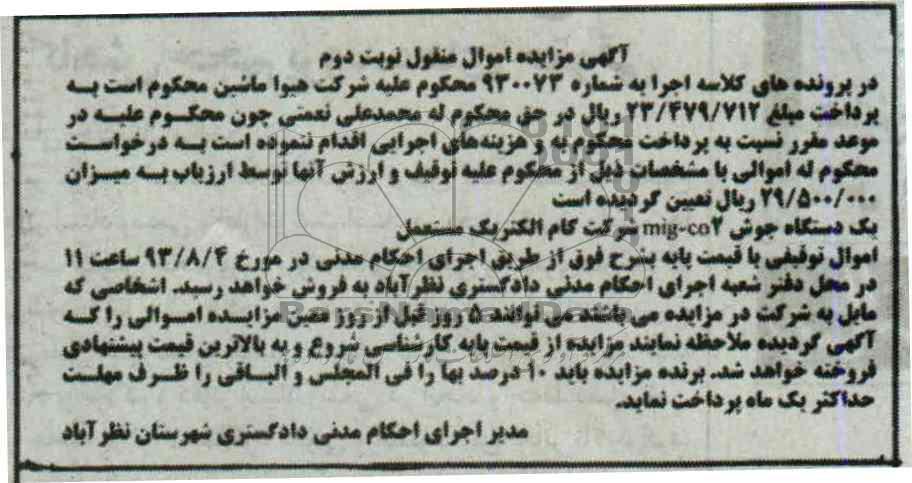 آگهی مزایده اموال منقول نوبت دوم
در پرونده های کلاسه اجرا به شماره ۹۳۰۰۷۳ محکوم علیه شرکت هیوا ماشین محکوم است به
پرداخت مبلغ ۲۳/۴۷۹/۷۱۲ ریال در حق محکوم له محمدعلی نعمتی چون محکوم علیه در
موعد مقرر نسبت به پرداخت محکوم به و هزینه‌های اجرایی اقدام ننموده است به درخواست
محکوم له اموالی با مشخصات ذیل از محکوم علیه توقیف و ارزش آنها توسط ارزیاب به میزان
۲۹/۵۰۰/۰۰۰ ریال تعیین گردیده است
یک دستگاه جوش mig-co۲ شرکت گام الکتریک مستعمل
اموال توقیفی با قیمت پایه بشرح فوق از طریق اجرای احکام مدنی در مورخ ۹۳/۸/۴ ساعت ۱۱
در محل دفتر شعبه اجرای احکام مدنی دادگستری نظرآباد به فروش خواهد رسید. اشخاصی که
مایل به شرکت در مزایده می باشند می توانند ۵ روز قبل از روز معین مزایده اموالی را که
آگهی گردیده ملاحظه نمایند مزایده از قیمت پایه کارشناسی شروع و به بالاترین قیمت پیشنهادی
فروخته خواهد شد. برنده مزایده باید ۱۰ درصد بها را فی المجلس و الباقی را ظرف مهلت
حداکثر یک ماه پرداخت نماید.
مدیر اجرای احکام مدنی دادگستری شهرستان نظرآباد